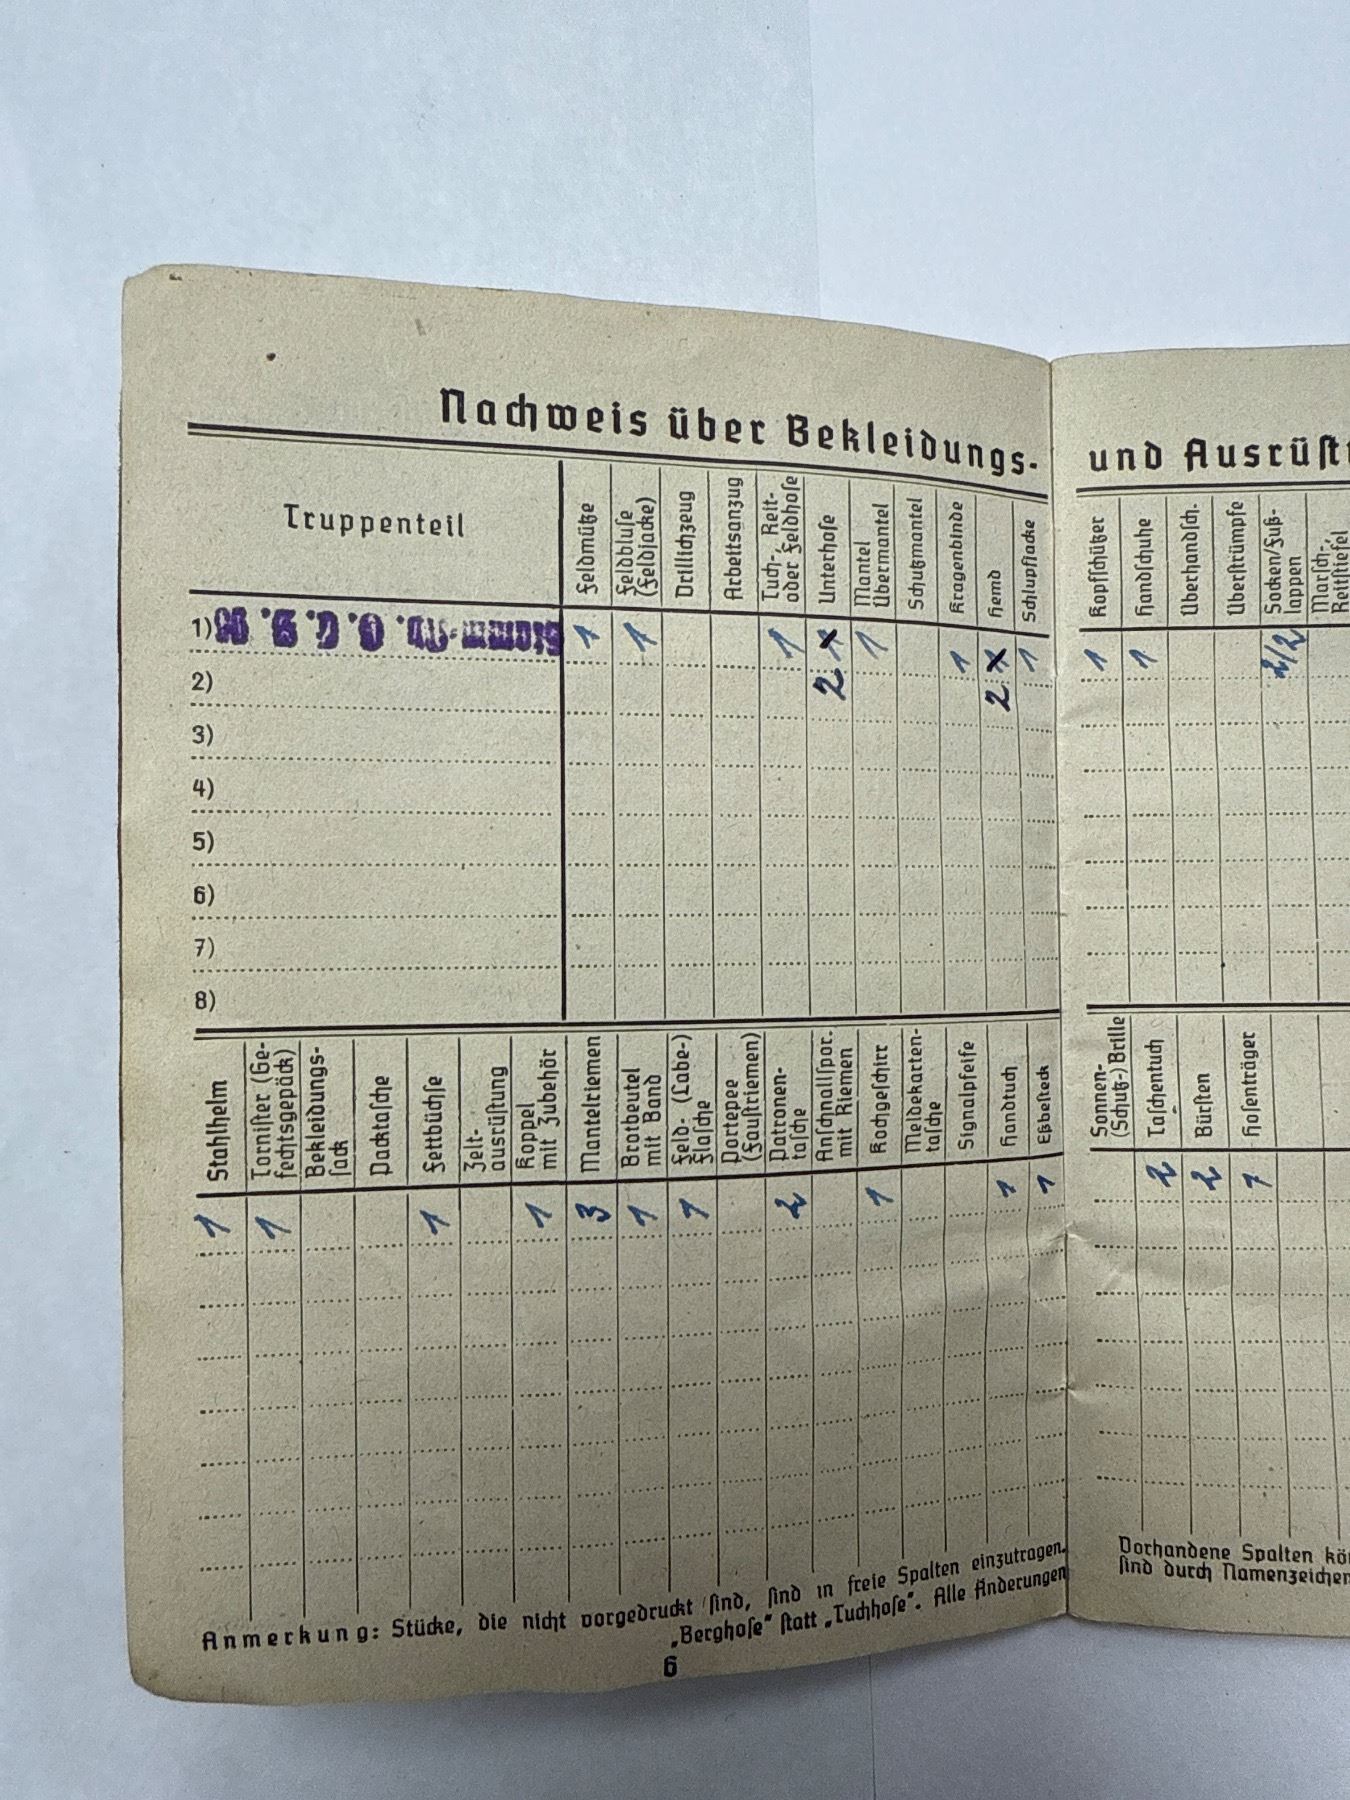 Nachweis über Bekleidungs-
Truppenteil
Feldmütze
Feldbluse
(Feldjacke)
Drillichzeug
Arbeitsanzug
Tuch-, Reit-
oder Feldhose
Unterhose
Mantel
Übermantel
Schutzmantel
Kragenbinde
Hemd
Schlupfjacke
1) 1 1 1 1 1 1 1 1
2) 2 2
3)
4)
5)
6)
7)
8)
Stahlhelm
Tornister (Ge-
fechtsgepäck)
Bekleidungs-
sack
Packtasche
Fettbüchse
Zelt-
ausrüstung
Koppel
mit Zubehör
Mantelriemen
Brotbeutel
mit Band
Feld- (Labe-)
flasche
Portepee
(Faustriemen)
Patronen-
tasche
Anschnallspor.
mit Riemen
Kochgeschirr
Meldekarten-
tasche
Signalpfeife
Handtuch
Eßbesteck
1 1 1 1 3 1 1 2 1 1 1
Anmerkung: Stücke, die nicht vorgedruckt sind, sind in freie Spalten einzutragen.
„Berghose“ statt „Tuchhose“. Alle Änderungen
6
und Ausrüst
Kopfschützer
Handschuhe
Überhandsch.
Überstrümpfe
Socken/Fuß-
lappen
Marsch-,
Reitstiefel
1 1 2/2
Sonnen-
(Schutz-) Brille
Taschentuch
Bürsten
Hosenträger
2 2 1
Vorhandene Spalten kö
sind durch Namenzeichen